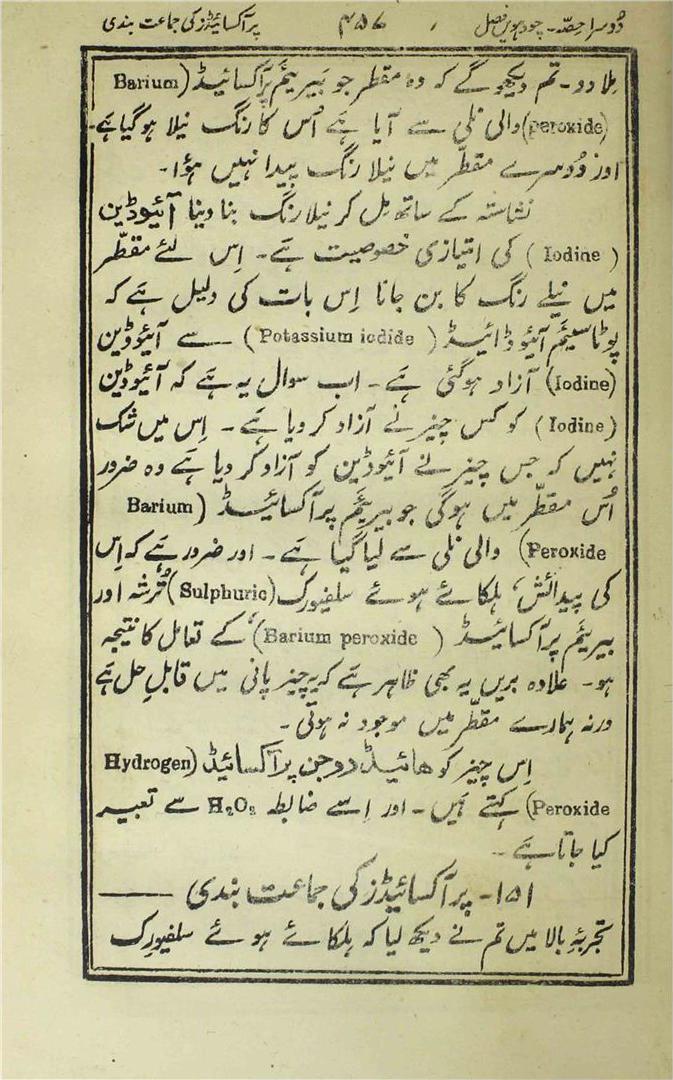 دُوسرا حصّہ۔ چودہویں فصل ۴۵۶ پرآکسائیڈز کی جماعت بندی
مِلا دو۔ تم دیکھو گے کہ وہ مقطر جو بیریئم پرآکسائیڈ (Barium
peroxide) والی نلی سے آیا ہے اُس کا رنگ نیلا ہو گیا ہے۔
اور دُوسرے مقطّر میں نیلا رنگ پیدا نہیں ہؤا۔
نشاستہ کے ساتھ مِل کر نیلا رنگ بنا دینا آئیوڈین
(Iodine) کی امتیازی خصوصیت ہے۔ اِس لئے مقطّر
میں نیلے رنگ کا بن جانا اِس بات کی دلیل ہے کہ
پوٹاسیئم آئیوڈائیڈ (Potassium iodide) سے آئیوڈین
(Iodine) آزاد ہوگئی ہے۔ اب سوال یہ ہے کہ آئیوڈین
(Iodine) کو کس چیز نے آزاد کر دیا ہے۔ اِس میں شک
نہیں کہ جس چیز نے آئیوڈین کو آزاد کر دیا ہے وہ ضرور
اُس مقطّر میں ہوگی جو بیریئم پرآکسائیڈ (Barium
Peroxide) والی نلی سے لیا گیا ہے۔ اور ضرور ہے کہ اِس
کی پیدائش، ہلکائے ہوئے سلفیورک (Sulphuric) تُرشہ اور
بیریئم پرآکسائیڈ (Barium peroxide)، کے تعامل کا نتیجہ
ہو۔ علاوہ بریں یہ بھی ظاہر ہے کہ یہ چیز پانی میں قابلِ حل ہے
ورنہ ہمارے مقطّر میں موجود نہ ہوتی۔
اِس چیز کو ھائیڈروجن پرآکسائیڈ (Hydrogen
Peroxide) کہتے ہیں۔ اور اِسے ضابطہ H₂O₂ سے تعبیر
کیا جاتا ہے۔
۱۵۱۔ پرآکسائیڈز کی جماعت بندی ——
تجربۂ بالا میں تم نے دیکھ لیا کہ ہلکائے ہوئے سلفیورک